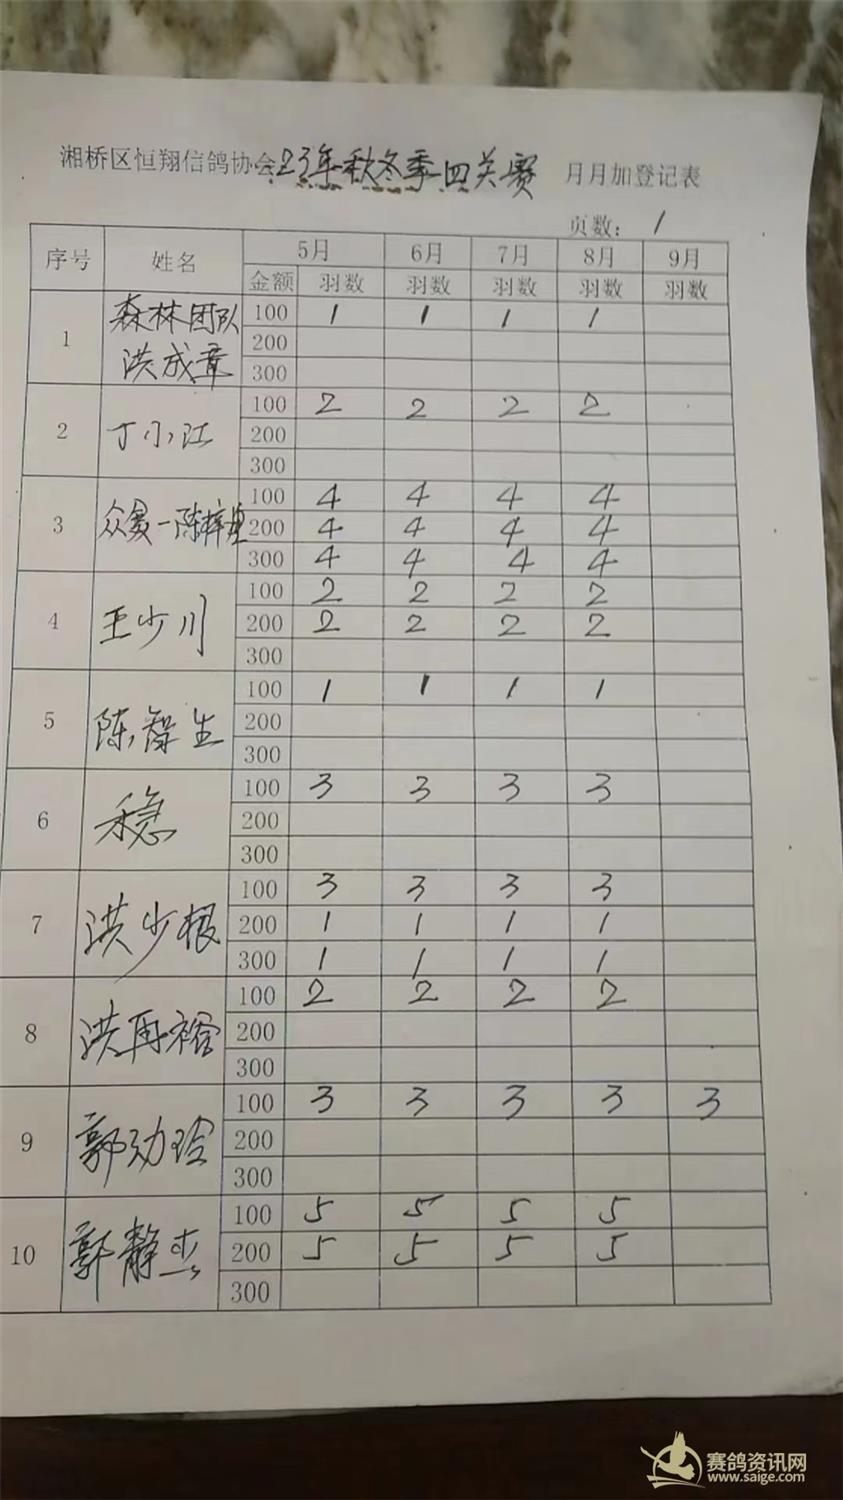 湘桥区恒翔信鸽协会23年秋冬季四关赛 月月加登记表
页数: 1
序号 姓名 5月 6月 7月 8月 9月
金额 羽数 羽数 羽数 羽数 羽数
1 森林团队 洪成章 100 1 1 1 1
200
300
2 丁小江 100 2 2 2 2
200
300
3 众赛一陈梓 100 4 4 4 4
200 4 4 4 4
300 4 4 4 4
4 王少川 100 2 2 2 2
200 2 2 2 2
300
5 陈智生 100 1 1 1 1
200
300
6 稳 100 3 3 3 3
200
300
7 洪少根 100 3 3 3 3
200 1 1 1 1
300 1 1 1 1
8 洪再裕 100 2 2 2 2
200
300
9 郭劲玲 100 3 3 3 3 3
200
300
10 郭静 100 5 5 5 5
200 5 5 5 5
300
赛鸽资讯网
www.saige.com